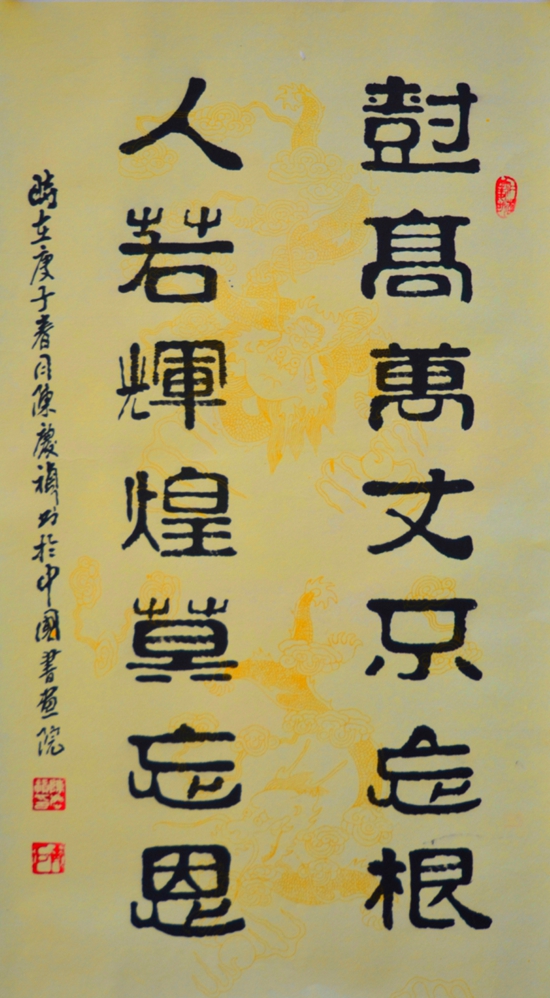 尌髙萬丈不忘根
人若輝煌莫忘恩
時在庚子春月陳慶禎书於中國書畫院